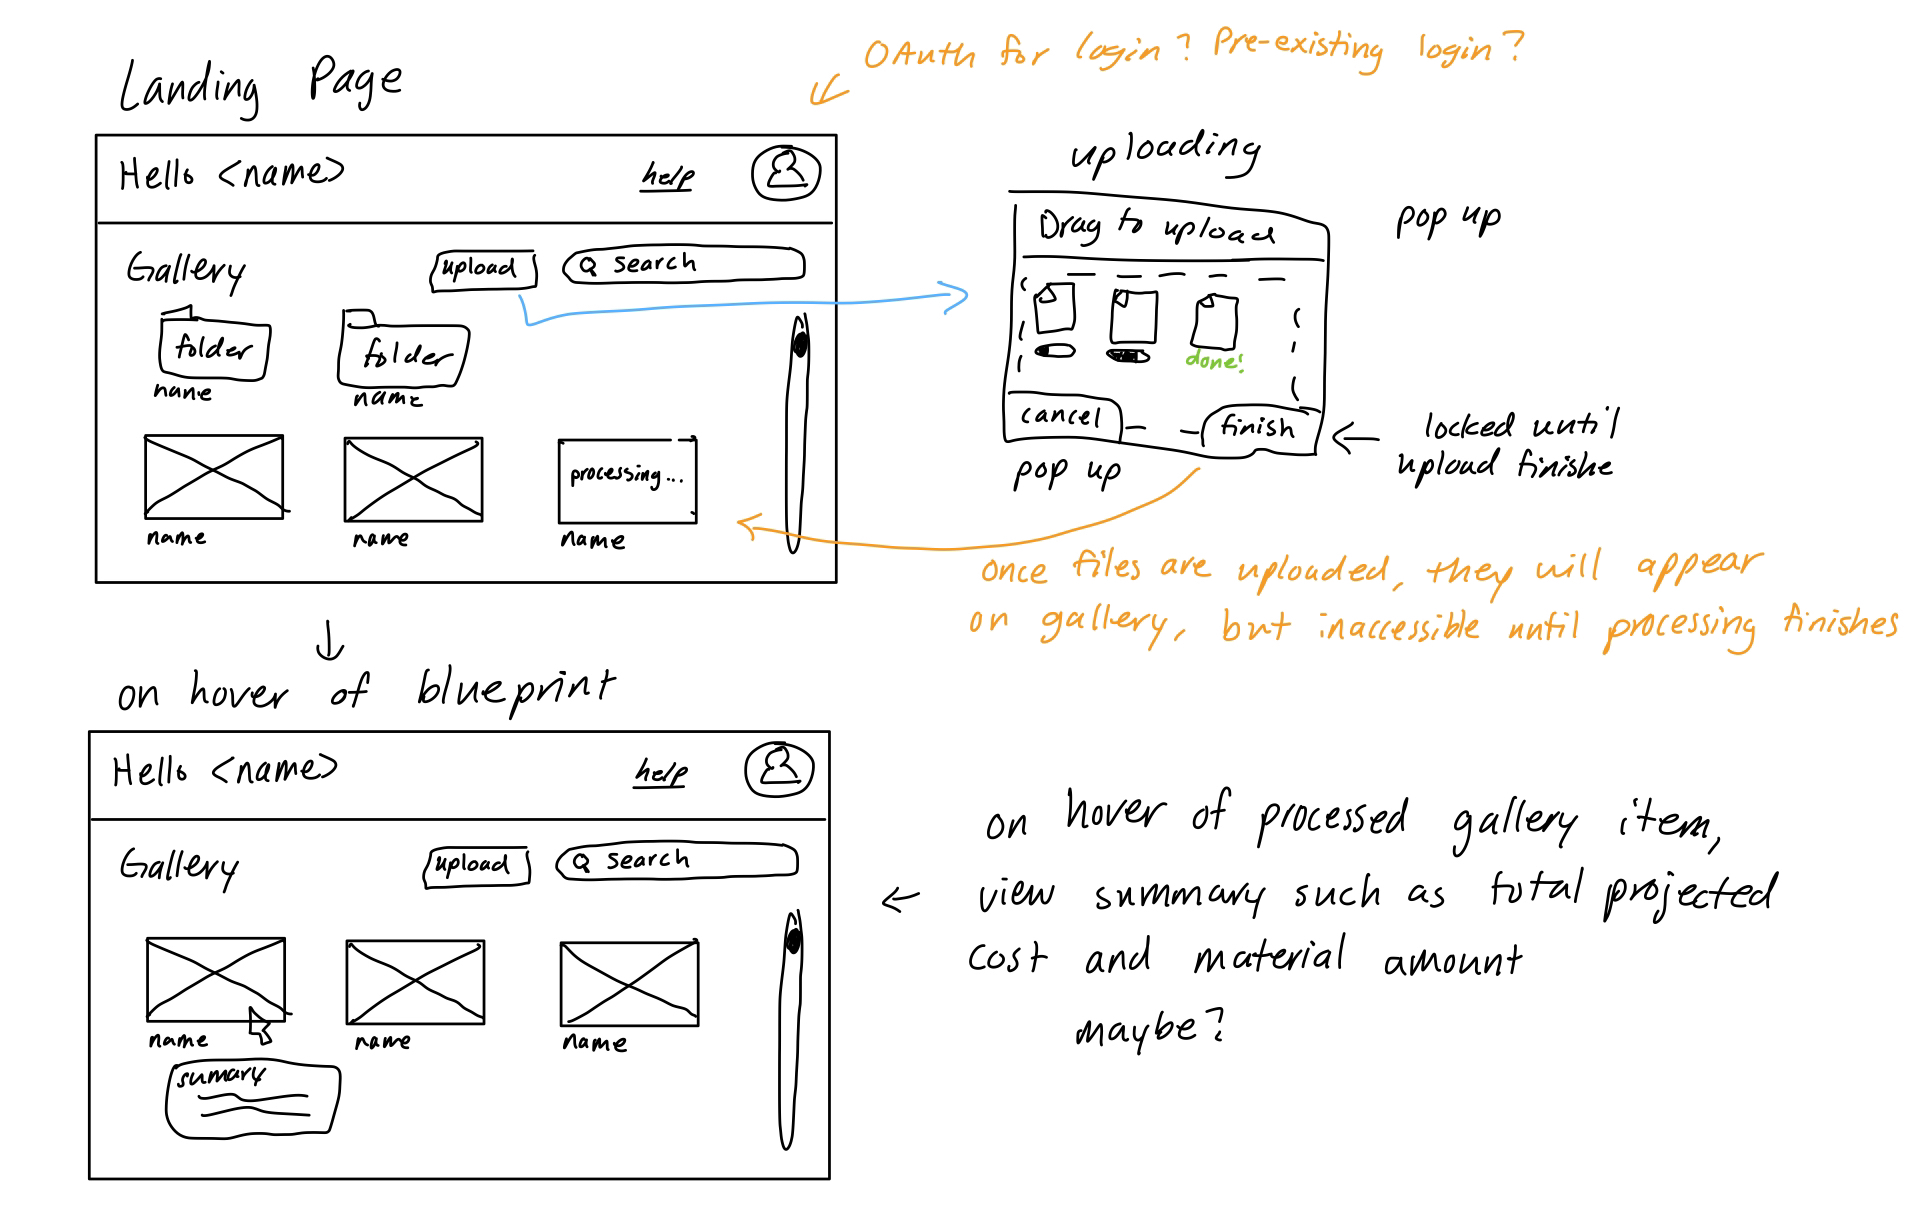 OAuth for login? Pre-existing login?
Landing Page
Hello <name>
help
Gallery
upload
search
folder
folder
name
name
processing...
name
name
name
uploading
pop up
Drag to upload
done!
cancel
finish
pop up
locked until
upload finishe
once files are uploaded, they will appear
on gallery, but inaccessible until processing finishes
on hover of blueprint
Hello <name>
help
Gallery
upload
search
name
name
name
sumary
on hover of processed gallery item,
view summary such as total projected
cost and material amount
maybe?